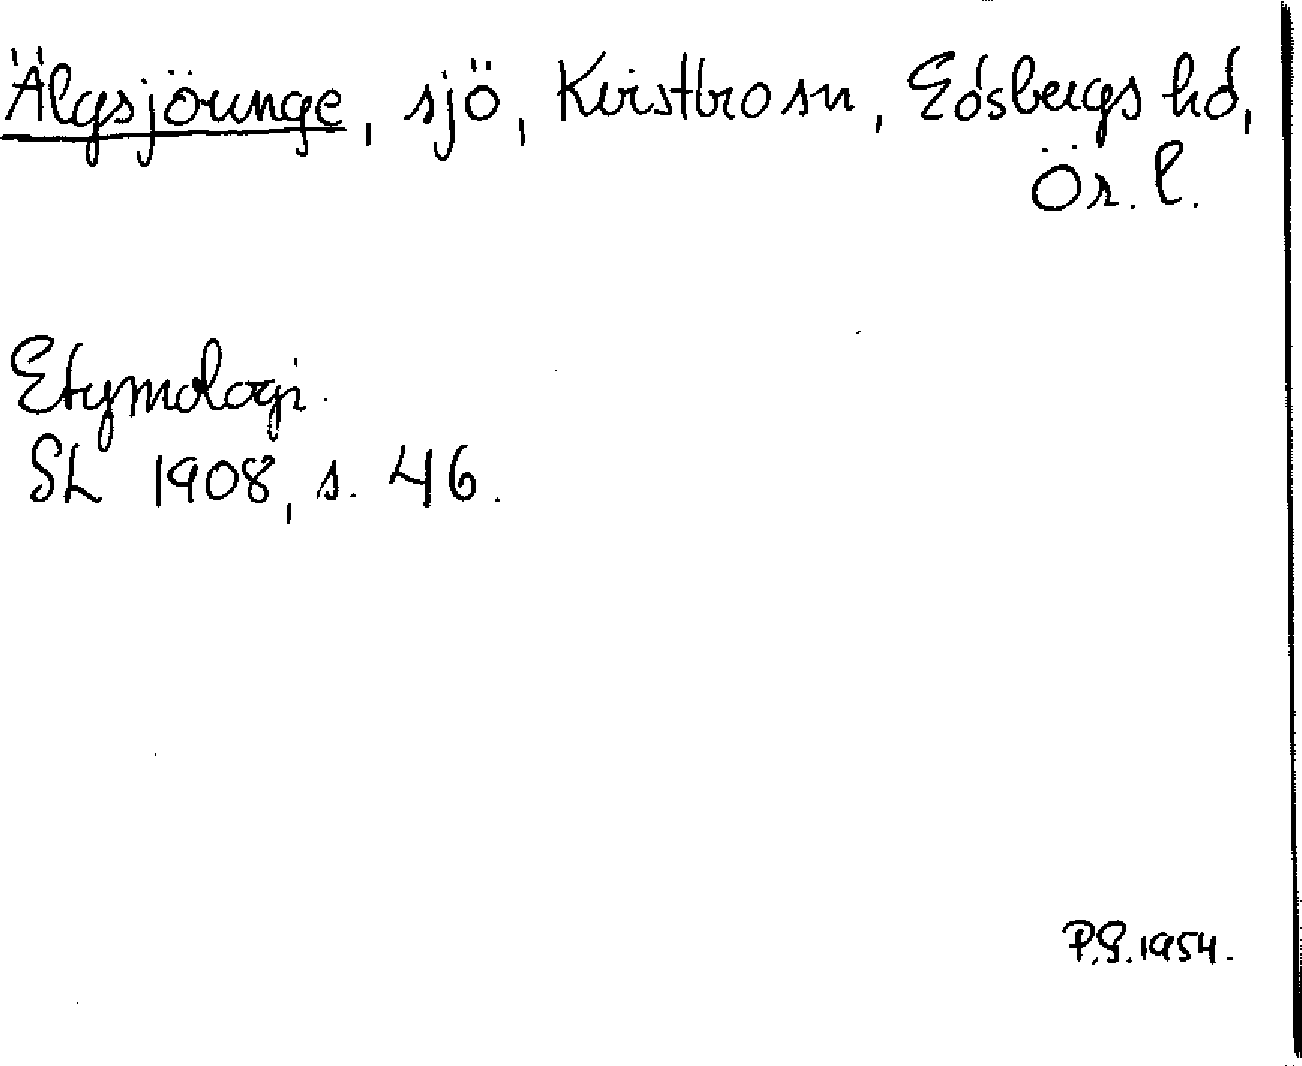 Älgsjöunge, sjö, Kvistbro sn, Edsbergs hd,
Ör. l.
Etymologi.
SL 1908, s. 46.
P.S. 1954.